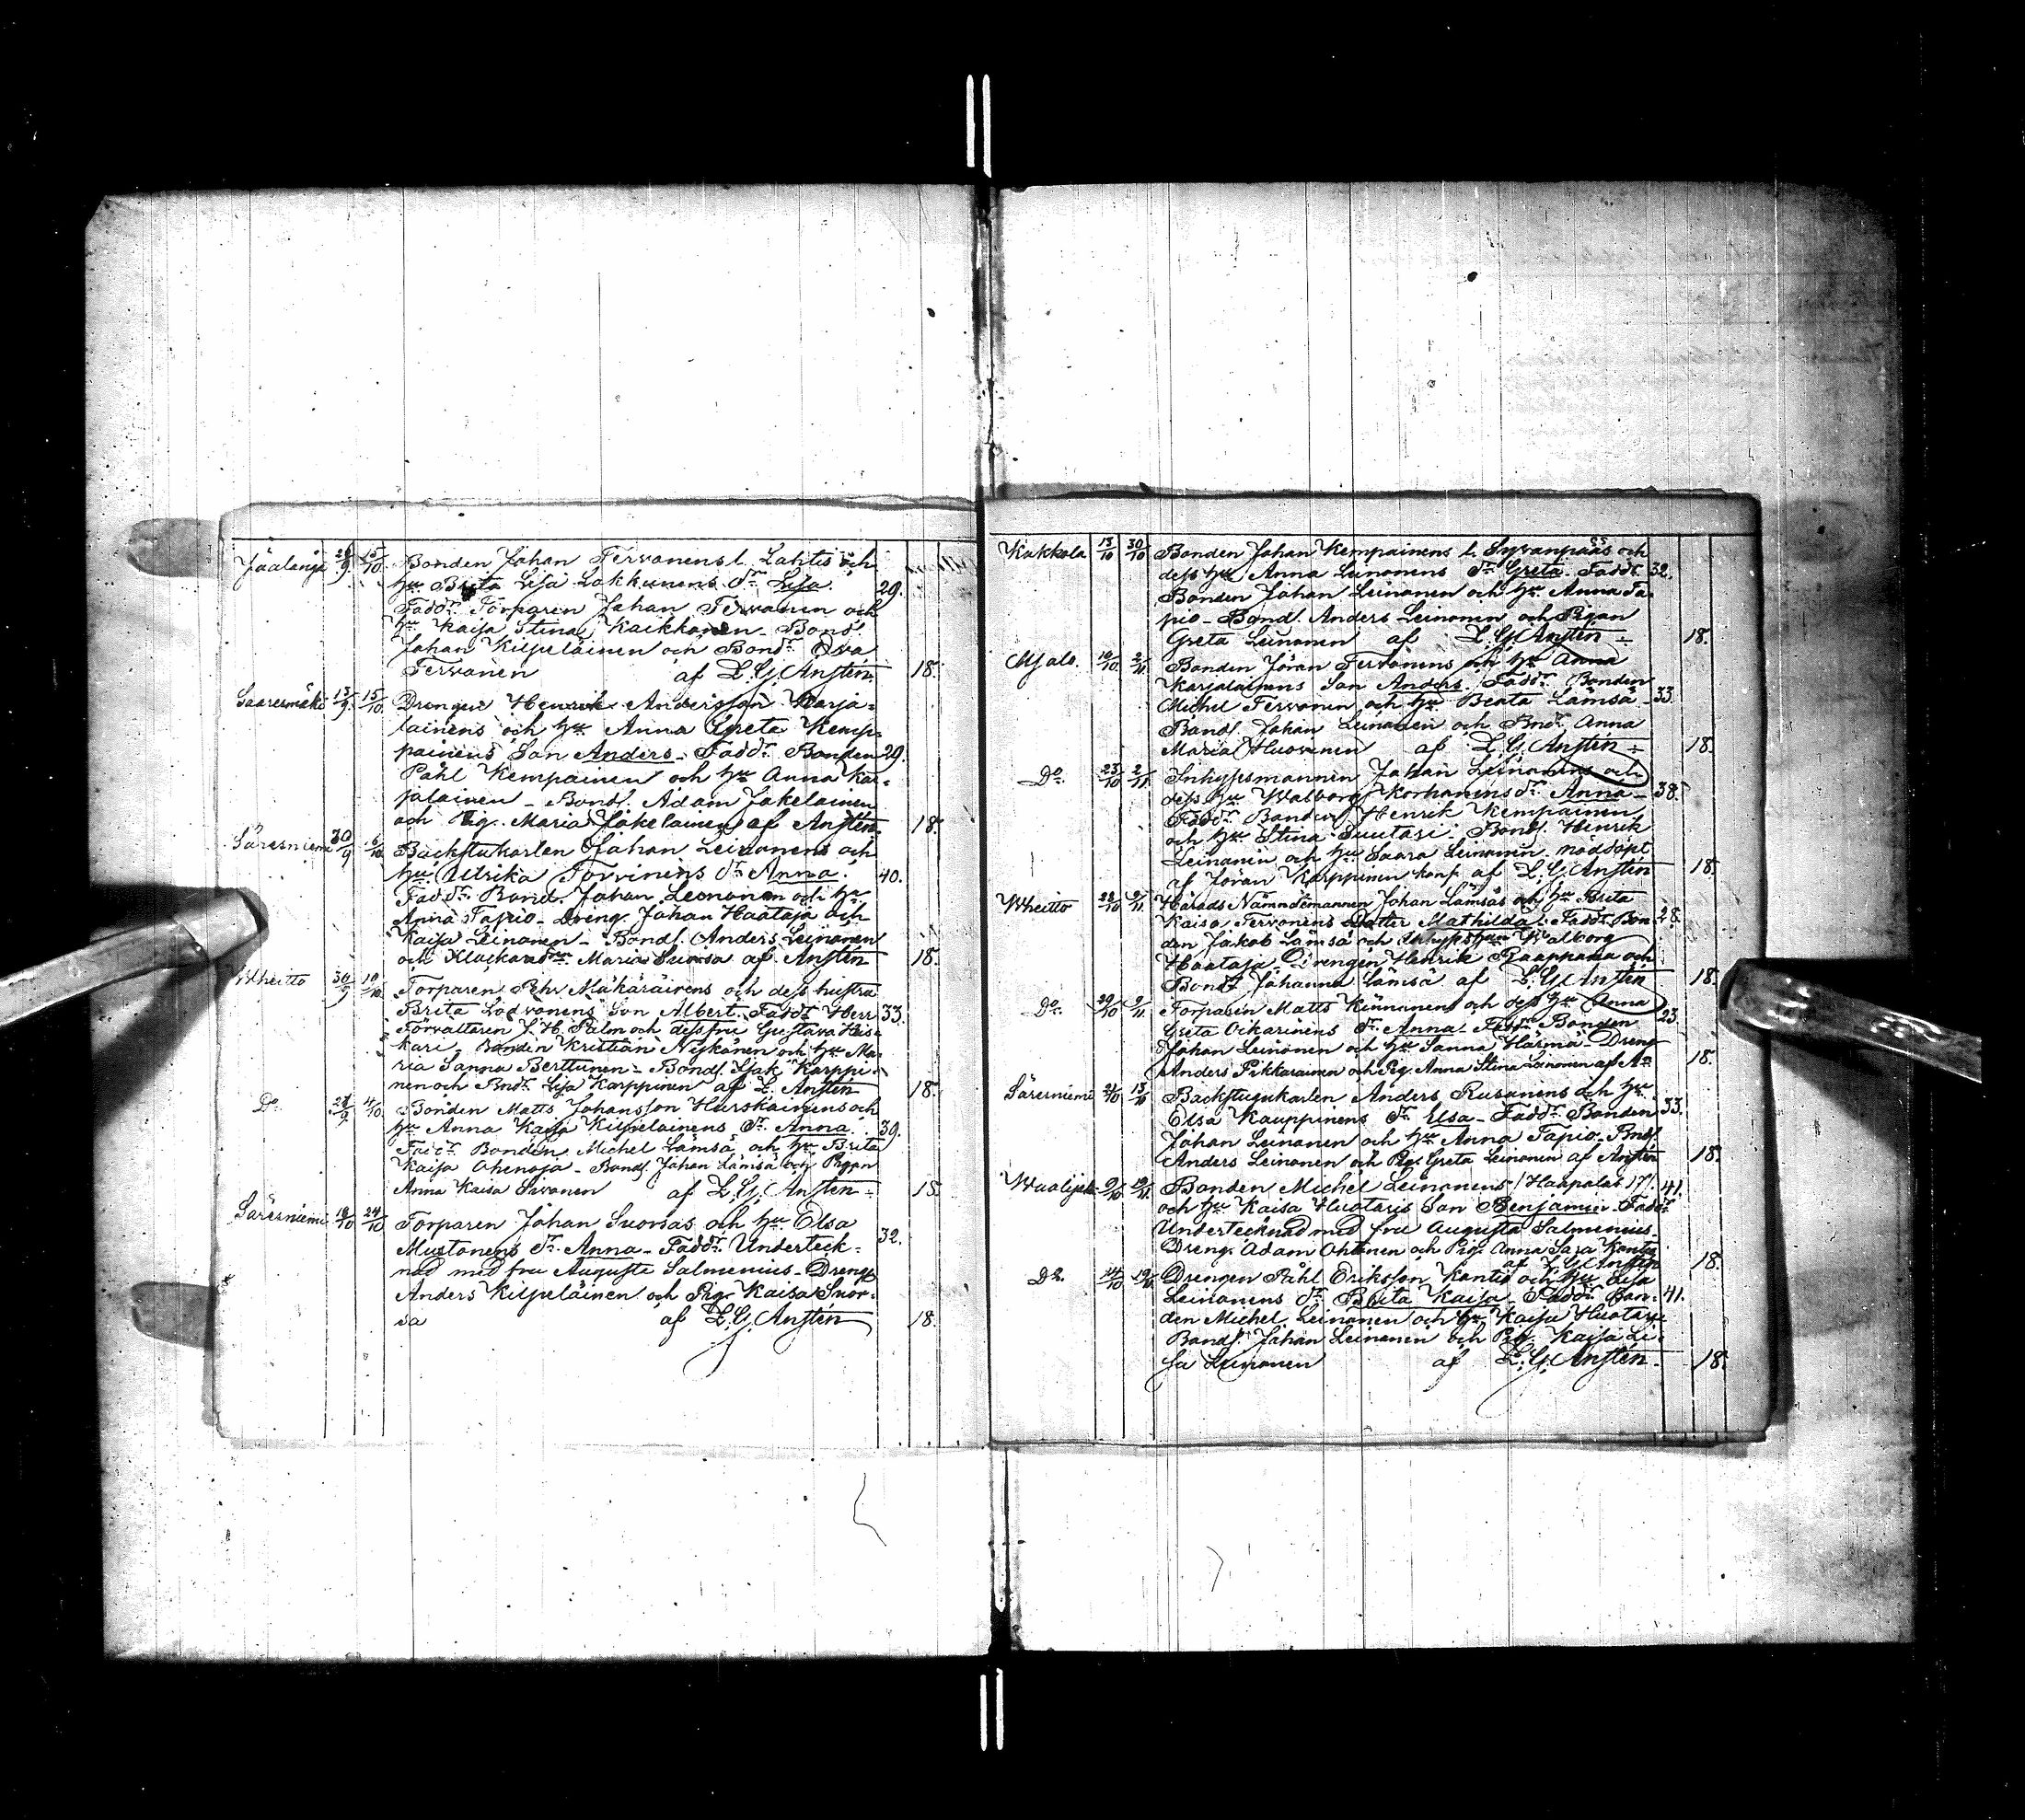 Jäälänjä 28/9 15/10 Bonden Johan Tervonens l. Lahtis och
hu Brita Lisa Lakkunens dr Lisa. 29.
Faddr. Torparen Johan Tervonen och
hu Kaisa Stina Kaikkonen - Bonds.
Johan Kilpeläinen och Bondr Eva
Tervonen af L. G. Anstén. 18.
Saaresmäki 13/9 15/10 Drengen Henrik Andersson Karja-
lainens och hu Anna Greta Kemp-
painens Son Anders - Faddr. Bonden 29.
Påhl Kempainen och hu Anna Kar-
jalainen - Bonds. Adam Jakelainen
och Pig. Maria Jäkelainen af Anstén. 18.
Säresniemi 30/9 6/10 Backstukarlen Johan Leinonens och
hu Ulrika Torvinens dr Anna. 40.
Faddr. Bond. Johan Leononen och hu
Anna Tapio - Dreng. Johan Haataja och
Kaisa Leinonen - Bonds. Anders Leinonen
och Klockaredr. Maria Suorsa af Anstén 18.
Wheitto 30/9 10/10 Torparen Pehr Mäkäräinens och dess hustru
Brita Lodvonens Son Albert. Faddr. Herr 33.
Förvaltaren J. H. Palm och dess fru Gustava Heis-
kari - Bonden Kristian Nykänen och hu Ma-
ria Sanna Berttunen - Bonds. Isak Karppi-
nen och Bndr. Lisa Karppinen af L. Anstén 18.
Do 28/9 4/10 Bonden Matts Johansson Hurskainens och
hu Anna Kaisa Kilpelainens dr Anna. 39.
Faddr. Bonden Michel Lämsä och hu Brita
Kaisa Ohenoja - Bonds. Johan Lämsä och Pigan
Anna Kaisa Sivonen af L. G. Anstén 15.
Säresniemi 18/10 24/10 Torparen Johan Suorsas och hu Elsa
Mustonens dr Anna - Faddr. Underteck- 32.
nad med fru Augusta Salmenius - Dreng
Anders Kilpeläinen och Pig. Kaisa Suor-
sa af L. G. Anstén 18.
Kukkola 13/10 30/10 Bonden Johan Kempainens l. Syvänpääs och
dess hu Anna Leinonens dr Greta. Faddr. 32.
Bonden Johan Leinonen och hu Anna Ta-
pio - Bond. Anders Leinonen och Pigan
Greta Leinonen af L. G. Anstén 18.
Mjalo. 18/10 2/11 Bonden Jöran Tervonens och hu Anna
Karjalainens Son Anders. Faddr. Bonden
Michel Tervonen och hu Beata Lämsä - 33.
Bonds. Johan Leinonen och Bndr. Anna
Maria Huovinen af L. G. Anstén 18.
Do 23/10 2/11 Inhysesmannen Johan Leinonens och
dess hu Walborg Korhonens dr Anna - 38.
Faddr. Bonden Henrik Kempainen
och hu Stina Suutari - Bonds. Henrik
Leinonen och hu Saara Leinonen. nöddöpt
af Jöran Karppinen konf. af L. G. Anstén 18.
Wheitto 22/10 9/11 Härads Nämndemannen Johan Lämsäs och hu Brita
Kaisa Tervonens dotter Mathilda - Faddr. Bon- 28.
den Jakob Lämsä och Walborg
Haataja. Drengen Henrik Raappana och
Bondr. Johanna Lämsä af L. G. Anstén 18.
Do 29/10 9/11 Torparen Matts Kinnunens och dess hu Anna
Greta Oikarinens dr Anna - Faddr. Bonden 23.
Johan Leinonen och hu Sanna Härmä - Dreng
Anders Pikkarainen och Pig. Anna Stina Leinonen af An 18.
Säresniemi 21/10 13/11 Backstugukarlen Anders Rusanens och hu
Elsa Kauppinens dr Elsa - Faddr. Bonden 33.
Johan Leinonen och hu Anna Tapio - Bnds.
Anders Leinonen och Pig. Greta Leinonen af Anstén 18.
Waalijala 9/10 19/11 Bonden Michel Leinonens /Haapalas 17/. 41.
och hu Kaisa Huotaris Son Benjamin - Faddr.
Undertecknad med fru Augusta Salmenius -
Dreng. Adam Ohtinen och Pig. Anna Sara Kantis
af L. G. Anstén 18.
Do. 14/10 19/11 Drengen Påhl Eriksson Kantis och hu Lisa
Leinonens dr Brita Kaisa - Faddr. Bon- 41.
den Michel Leinonen och hu Kaisa Huotari
Bonds. Johan Leinonen och Pig. Kaisa Li-
sa Leinonen af L. G. Anstén. 18.